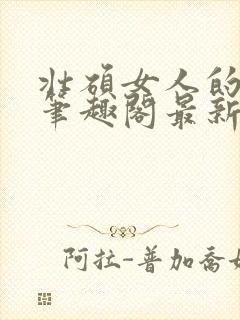 壮硕女人的
笔趣阁最新
阿拉-普加乔